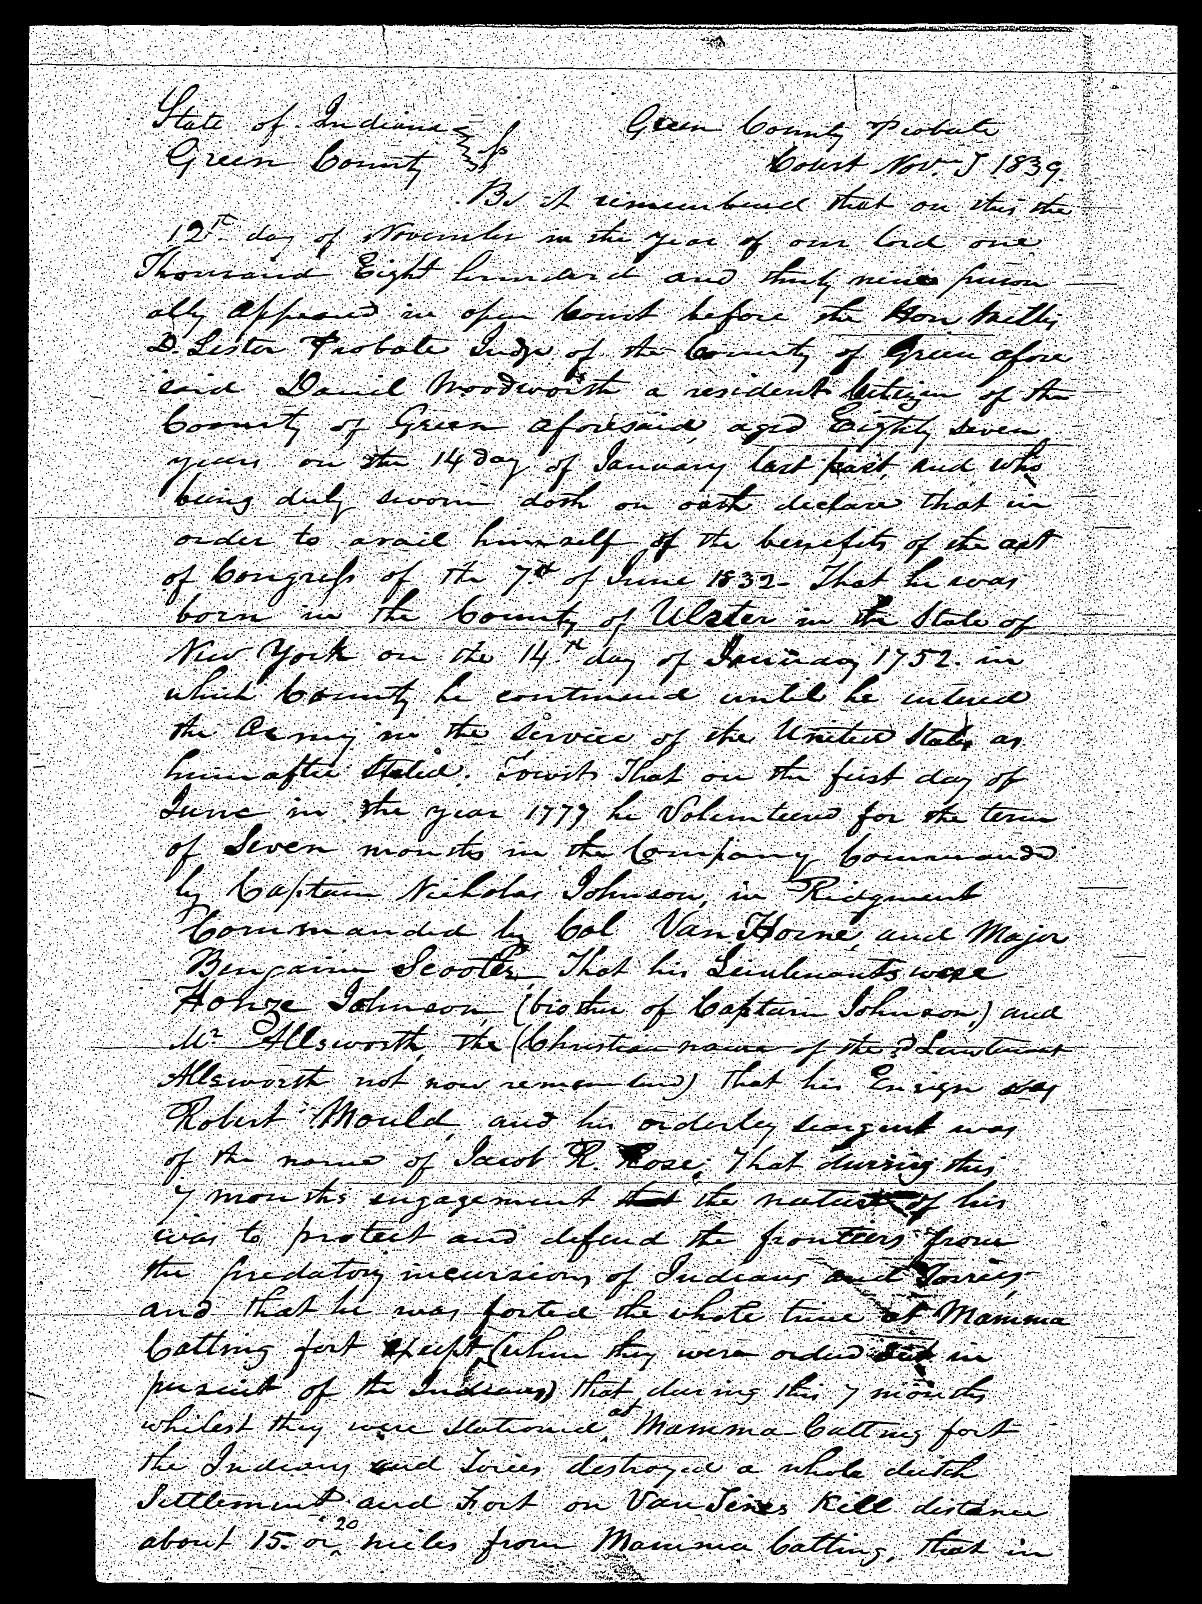 State of Indiana } ss Green County Probate
Green County } Court Nov. T 1839.
Be it remembered that on this the
12th day of November in the year of our lord one
Thousand Eight hundard and thirty nine person
ally appeared in open Court before the Hon Willis
D. Lester Probate Judge of the County of Green afore
said Daniel Woodworth a resident Citizen of the
County of Green aforesaid, aged Eighty seven
years on the 14 day of January last past, and who
being duly sworn doth on oath declare that in
order to avail himself of the benefits of the act
of Congress of the 7th of June 1832 - That he was
born in the County of Ulster in the State of
New York on the 14th day of January 1752. in
which County he continued until he entered
the Army in the service of the United States as
hereinafter stated. Towit, That on the first day of
June in the year 1779 he Volunteered for the term
of Seven months in the Company Commanded
by Captain Nicholas Johnson, in Ridgment
Commanded by Col Van Horne, and Major
Bengamin Scooter, That his Lieutenants were
Honze Johnson, (brother of Captain Johnson,) and
Mr Allsworth, the (Christian name of the 2d Lieutenant
Allsworth not now remembered) that his Ensign was
Robert Mould, and his orderley seargent was
of the name of Jacob R. Rose; That during this
7 months engagement the nature of his
was to protect and defend the frontiers from
the predatory incursions of Indians and Torries,
and that he was forted the whole time at Mamma
Catting fort except (when they were ordered out in
persuit of the Indians) that during this 7 months
whilest they were stationed at Mamma Catting fort
the Indians and Tories destroyed a whole dutch
Settlement and Fort on Van Tines Kill distance
about 15. or 20 miles from Mamma Catting, that in